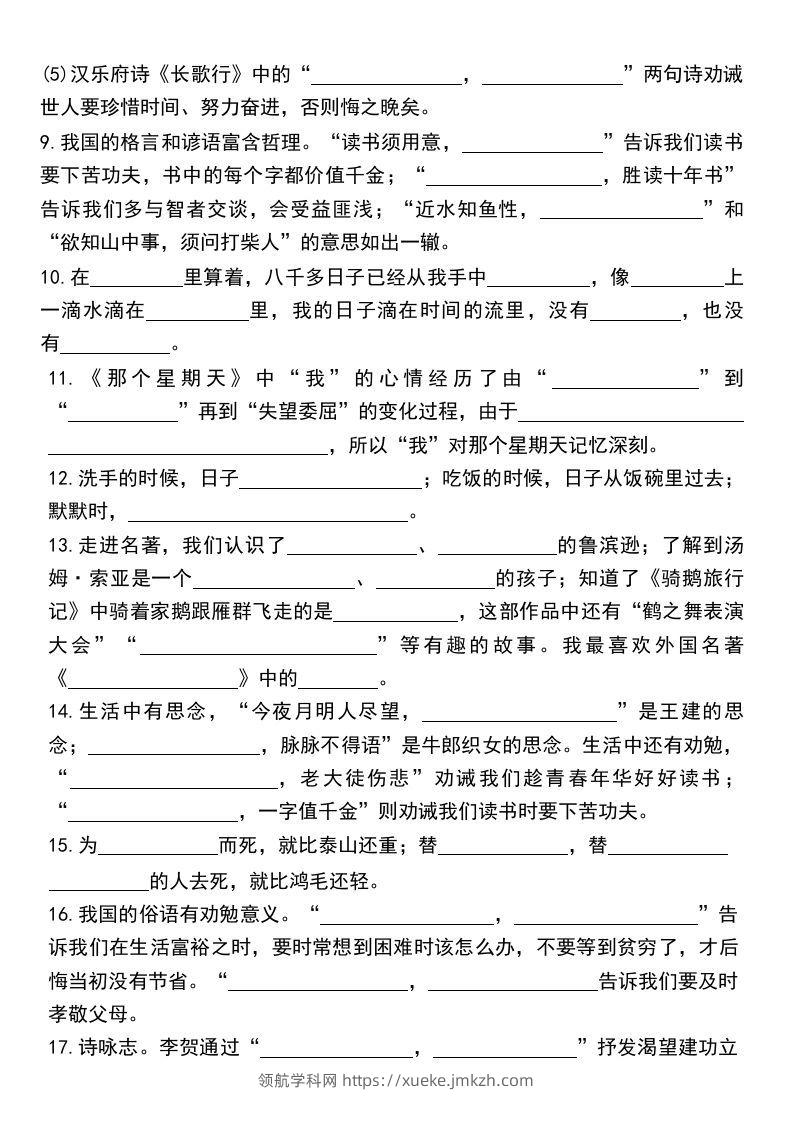 (5)汉乐府诗《长歌行》中的“______________，______________”两句诗劝诫
世人要珍惜时间、努力奋进，否则悔之晚矣。
9.我国的格言和谚语富含哲理。“读书须用意，______________”告诉我们读书
要下苦功夫，书中的每个字都价值千金；“________________，胜读十年书”
告诉我们多与智者交谈，会受益匪浅；“近水知鱼性，________________”和
“欲知山中事，须问打柴人”的意思如出一辙。
10.在_________里算着，八千多日子已经从我手中__________，像_________上
一滴水滴在__________里，我的日子滴在时间的流里，没有_________，也没
有___________。
11.《那个星期天》中“我”的心情经历了由“______________”到
“___________”再到“失望委屈”的变化过程，由于______________________
____________________________，所以“我”对那个星期天记忆深刻。
12.洗手的时候，日子__________________；吃饭的时候，日子从饭碗里过去；
默默时，____________________________。
13.走进名著，我们认识了_____________、____________的鲁滨逊；了解到汤
姆·索亚是一个________________、____________的孩子；知道了《骑鹅旅行
记》中骑着家鹅跟雁群飞走的是____________，这部作品中还有“鹤之舞表演
大会”“________________________”等有趣的故事。我最喜欢外国名著
《_________________》中的________。
14.生活中有思念，“今夜月明人尽望，___________________”是王建的思
念；_________________，脉脉不得语”是牛郎织女的思念。生活中还有劝勉，
“_____________________，老大徒伤悲”劝诫我们趁青春年华好好读书；
“_________________，一字值千金”则劝诫我们读书时要下苦功夫。
15.为____________而死，就比泰山还重；替_____________，替____________
__________的人去死，就比鸿毛还轻。
16.我国的俗语有劝勉意义。“_________________，__________________”告
诉我们在生活富裕之时，要时常想到困难时该怎么办，不要等到贫穷了，才后
悔当初没有节省。“__________________，_________________告诉我们要及时
孝敬父母。
17.诗咏志。李贺通过“_______________，______________”抒发渴望建功立
领航学科网 https://xueke.jmkzh.com